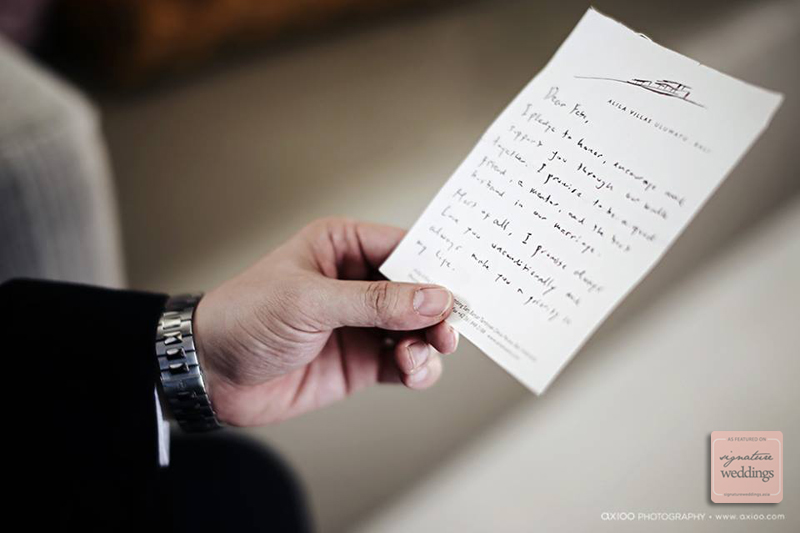 ALILA VILLAS ULUWATU · BALI
Dear Febs,
I pledge to honor, encourage and
support you through our walk
together. I promise to be a good
friend, a mentor, and the best
husband in our marriage.
Most of all, I promise always
love you unconditionally and
always make you a priority in
my life.
AS FEATURED ON
signature
weddings
signatureweddings.asia
axioo PHOTOGRAPHY • www.axioo.com